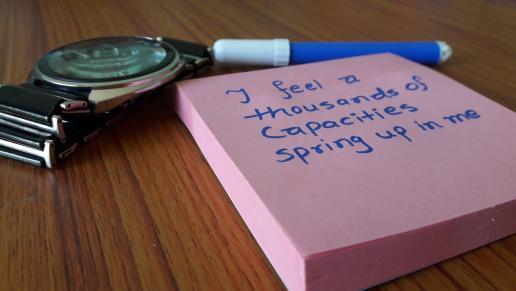 I feel a
thousands of
capacities
spring up in me